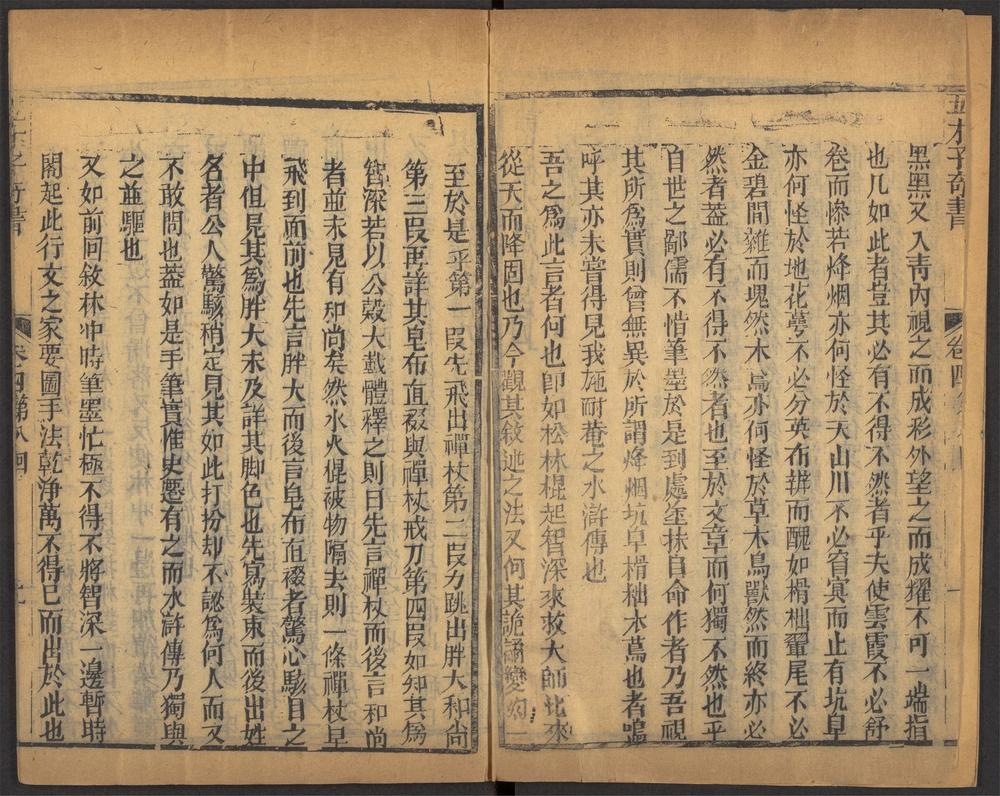 五才子奇書
卷四
黑黑又入靑內視之而成彩外望之而成耀不可一端指
也凡如此者豈其必有不得不然者乎夫使雲霞不必舒
卷而慘若烽烟亦何怪於天山川不必窅冥而止有坑阜
亦何怪於地花萼不必分英布瓣而醜如榾柮翬尾不必
金碧間雜而塊然木鳶亦何怪於草木鳥獸然而終亦必
然者葢必有不得不然者也至於文章而何獨不然也乎
自世之鄙儒不惜筆墨於是到處塗抹自命作者乃吾視
其所爲實則曾無異於所謂烽烟坑阜榾柮木蔦也者嗚
呼其亦未嘗得見我施耐菴之水滸傳也
吾之爲此言者何也卽如松林棍起智深來救大師此來
從天而降固也乃今觀其敘述之法又何其詭譎變幻一
至於是乎第一叚先飛出禪杖第二叚方跳出胖大和尙
第三叚再詳其皂布直裰與禪杖戒刀第四叚如知其爲
智深若以公榖大戴體釋之則曰先言禪杖而後言和尙
者並未見有和尙矣然水火棍被物隔去則一條禪杖早
飛到面前也先言胖大而後言皂布直裰者驚心駭目之
中但見其爲胖大未及詳其脚色也先寫裝束而後出姓
名者公人驚駭稍定見其如此打扮却不認爲何人而又
不敢問也葢如是手筆實惟史遷有之而水滸傳乃獨與
之並驅也
又如前回敘林冲時筆墨忙極不得不將智深一邊暫時
閣起此行文之家要圖手法乾淨萬不得已而出於此也
卷四第八回